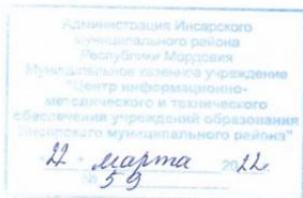 Администрация Инсарского
муниципального района
Республики Мордовия
Муниципальное казенное учреждение
"Центр информационно-
методического и технического
обеспечения учреждений образования
Инсарского муниципального района"
"22" марта 2022
№ 59